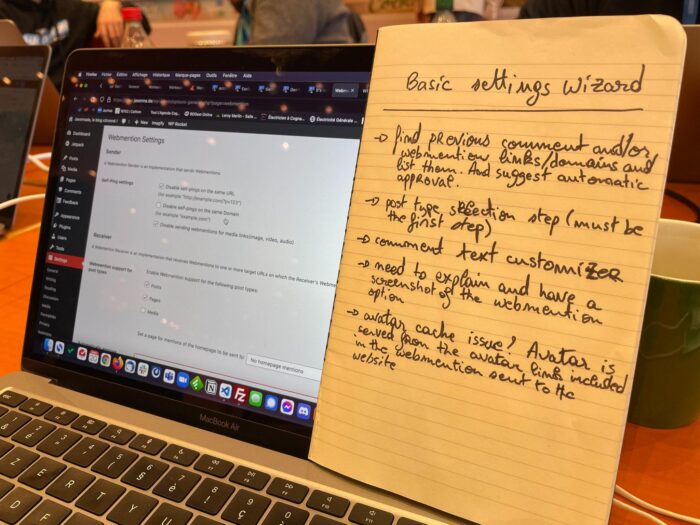 Firefox Fichier Édition Affichage Historique Marque-pages Outils Fenêtre Aide
Imagify WP Rocket
Dashboard
Jetpack
Posts
Media
Pages
Comments
Feedback
Appearance
Plugins
Users
Tools
Settings
General
Writing
Reading
Discussion
Media
Permalinks
Privacy
Webmention Settings
Sender
A Webmention Sender is an implementation that sends Webmentions.
Self-Ping settings
Disable self-pings on the same URL
(for example "http://example.com/?p=123")
Disable self-pings on the same Domain
(for example "example.com")
Disable sending webmentions for media links (image, video, audio)
Receiver
A Webmention Receiver is an implementation that receives Webmentions to one or more target URLs on which the Receiver's Webme
Webmention support for post types
Enable Webmention support for the following post types:
Posts
Pages
Media
Set a page for mentions of the homepage to be sent to:
No homepage mentions
MacBook Air
Basic settings Wizard
→ find previous comment and/or
webmention links/domains and
list them. And suggest automatic
approval.
→ post type selection step (must be
the first step)
→ comment text customizer
→ need to explain and have a
screenshot of the webmention
option
→ avatar cache issue? Avatar is
served from the avatar links included
in the webmention sent to the
website